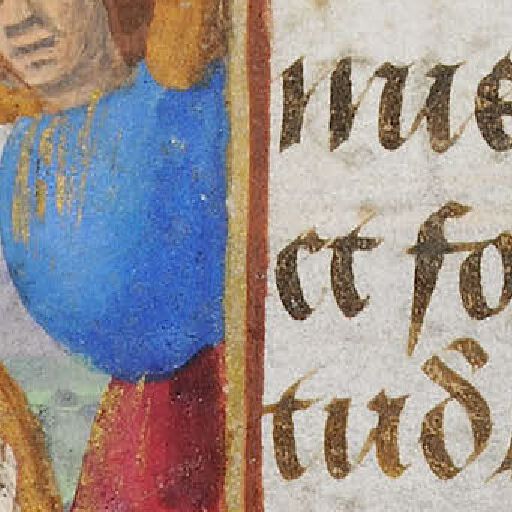 nue
ct fo
tud